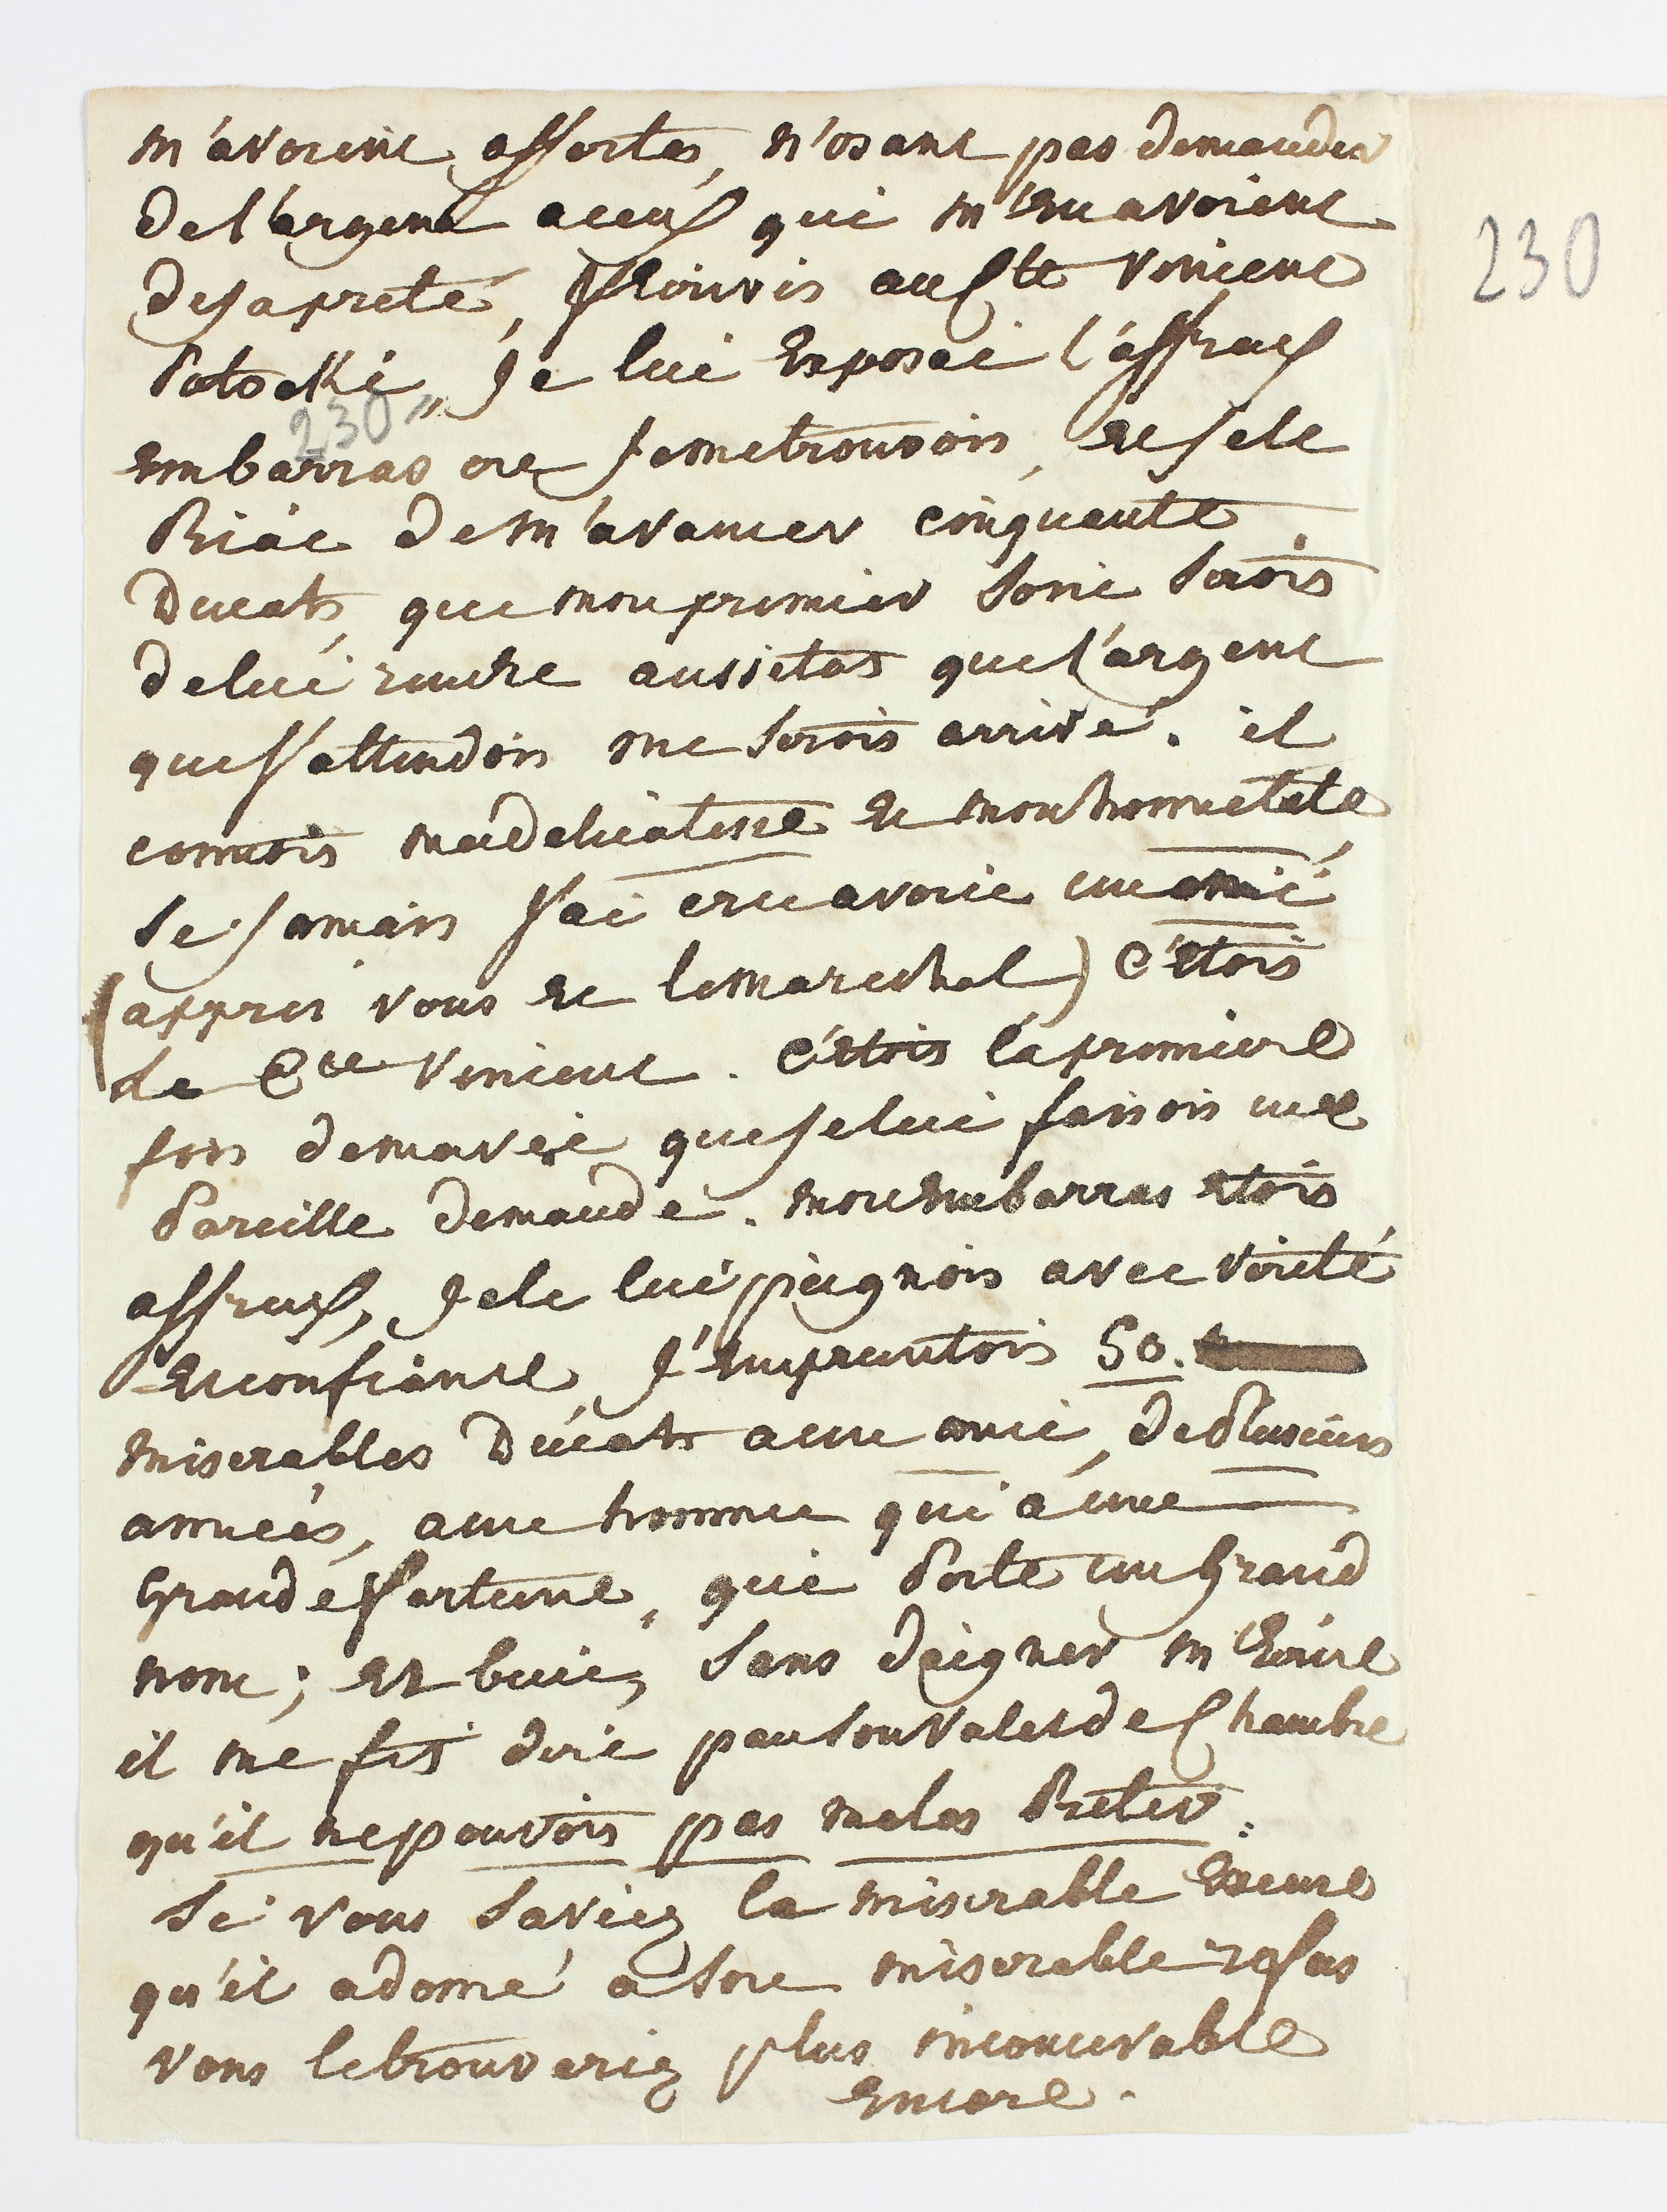 m'avoient affectés, n'osant pas demander
de l'argent aceux qui m'en avoient
desja preté, J'Ecrivis au Cte Vincent
Potocki, Je lui Exposai l'affreux
230
embarras ou Je me trouvois, et Je le
Priai de m'avancer cinquante
Ducats, que mon premier soin seroit
de lui rendre aussitot que l'argent
que J'attendois me seroit arrivé. il
connoit ma delicatesse et mon honnetete
se Jamais J'ai cru avoir un ami
(appres vous et le marechal) c'etoit
le Cte Vincent. C'etoit la premiere
fois de ma vie que Je lui faisois une
Pareille demande. mon embarras etoit
affreux, Je le lui peignois avec vérité
et confiance, J'empruntois 50.
miserables Ducats a un ami, de Plusieurs
années, a un homme qui a une
Grande fortune, qui Porte un Grand
nom; et bien, sans deigner m'Ecrire
il me fit dire par son Valet de Chambre
qu'il ne pouvoit pas me les Preter.
Si vous saviez la miserable Excuse
qu'il a donné a son miserable refus
vous le trouveriez plus inconcevable
encore.
230